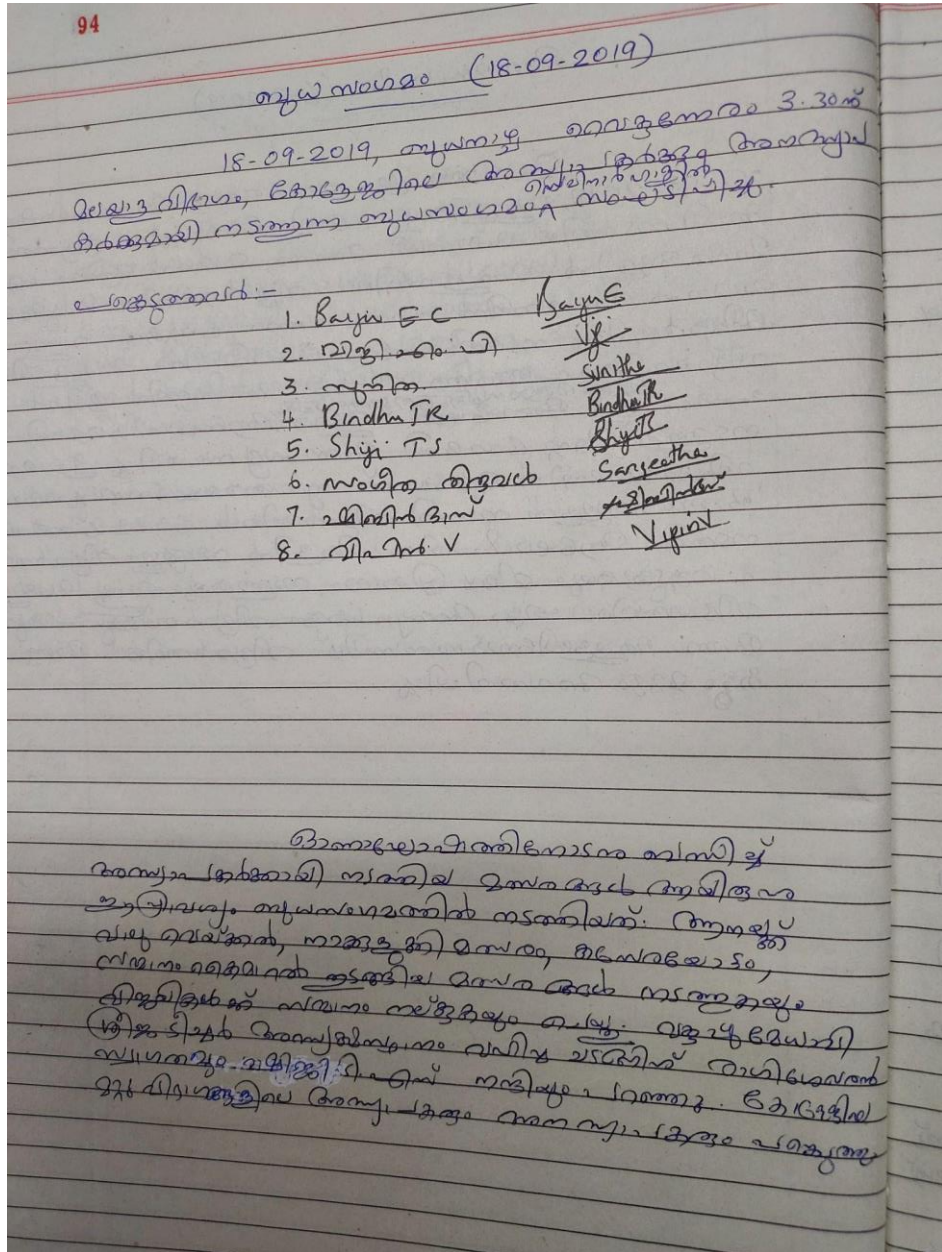 94
ബുധസംഗമം (18-09-2019)
18-09-2019, ബുധനാഴ്ച വൈകുന്നേരം 3.30ന്
മലയാള വിഭാഗം, കോളേജിലെ അദ്ധ്യാപകർക്കും അനദ്ധ്യാപ
സെമിനാർഹാളിൽ
കർക്കുമായി നടത്തുന്ന ബുധസംഗമം സംഘടിപ്പിച്ചു.
പങ്കെടുത്തവർ:-
1. Baryin E C BaynE
2. വിജി എം പി Viji
3. സുനിത Sunitha
4. Bindhu TR BindhuTR
5. Shiji TS ShijiTS
6. സംഗീത തിരുവൾ Sangeetha
7. ദാസ്
8. വിപിൻ V VipinV
ഓണാഘോഷത്തിനോടനുബന്ധിച്ച്
അദ്ധ്യാപകർക്കായി നടത്തിയ മത്സരങ്ങൾ ആയിരുന്നു
ഈ പ്രാവശ്യം ബുധസംഗമത്തിൽ നടത്തിയത്. ആനയ്ക്ക്
വാലു വെയ്ക്കൽ, നാരങ്ങ മത്സരം, കസേരയോട്ടം,
സമ്മാനം കൈമാറൽ തുടങ്ങിയ മത്സരങ്ങൾ നടത്തുകയും
വിജയികൾക്ക് സമ്മാനം നല്കുകയും ചെയ്തു. വകുപ്പുമേധാവി
ശ്രീജ ടീച്ചർ അദ്ധ്യക്ഷസ്ഥാനം വഹിച്ച ചടങ്ങിന്
സ്വാഗതവും ടി.എസ് നന്ദിയും പറഞ്ഞു. കോളേജിലെ
മറ്റു വിഭാഗങ്ങളിലെ അദ്ധ്യാപകരും അനദ്ധ്യാപകരും പങ്കെടുത്തു